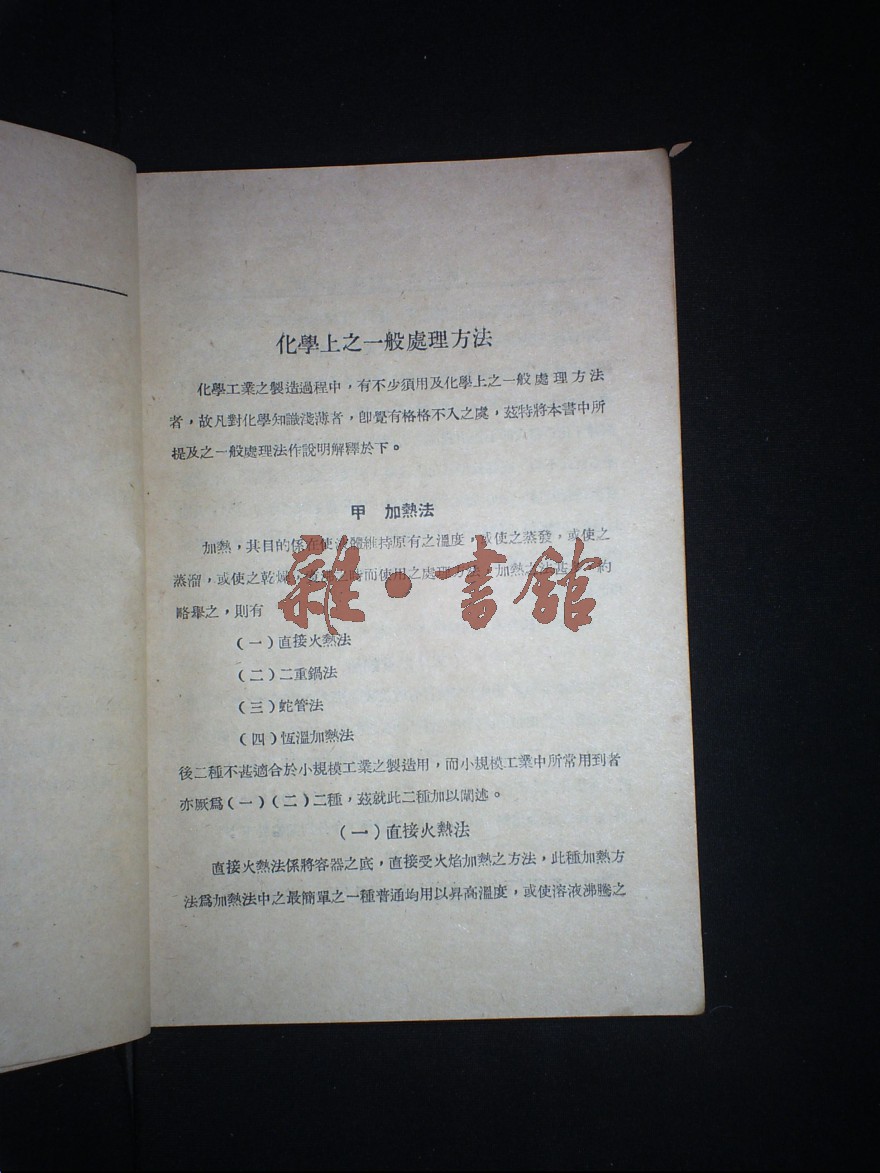 化學上之一般處理方法
化學工業之製造過程中，有不少須用及化學上之一般處理方法
者，故凡對化學知識淺薄者，卽覺有格格不入之處，茲特將本書中所
提及之一般處理法作說明解釋於下。
甲　加熱法
加熱，其目的係在使液體維持原有之溫度，或使之蒸發，或使之
蒸溜，或使之乾燥，而使用之處理方法，加熱之法甚多，約
略舉之，則有
雜·書館
（一）直接火熱法
（二）二重鍋法
（三）蛇管法
（四）恆溫加熱法
後二種不甚適合於小規模工業之製造用，而小規模工業中所常用到者
亦厥爲（一）（二）二種，茲就此二種加以闡述。
（一）直接火熱法
直接火熱法係將容器之底，直接受火焰加熱之方法，此種加熱方
法爲加熱法中之最簡單之一種普通均用以昇高溫度，或使溶液沸騰之